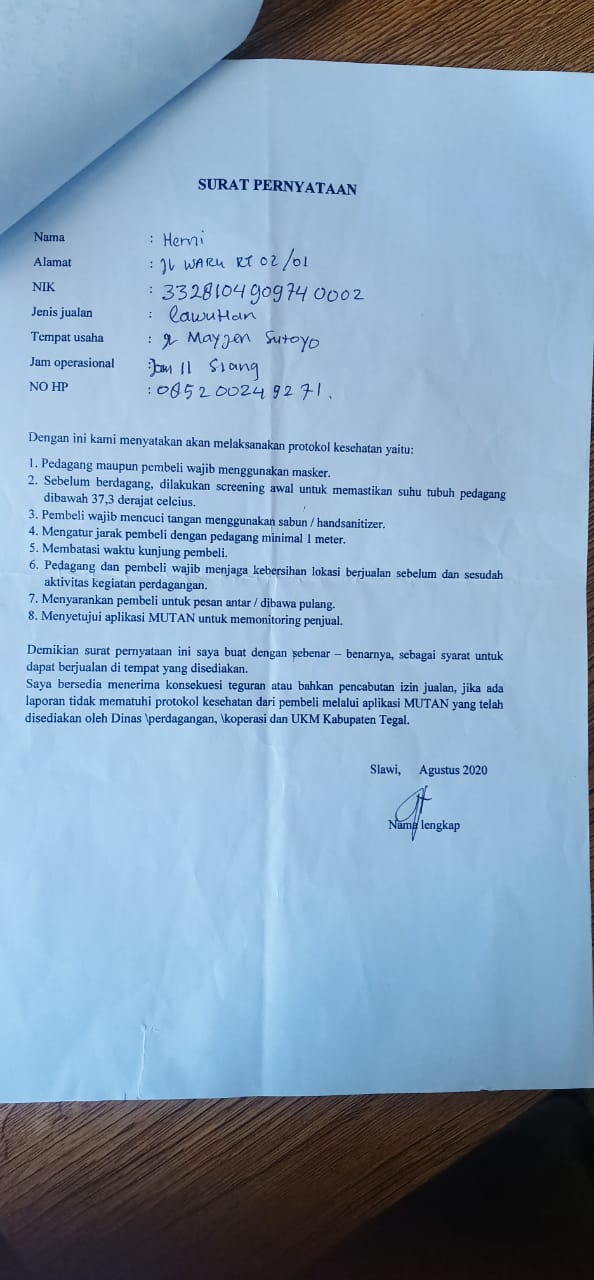 SURAT PERNYATAAN
Nama : Herni
Alamat : Jl WARU RT 02/01
NIK : 3328104909740002
Jenis jualan : Lawuhan
Tempat usaha : Jl Mayjen Sutoyo
Jam operasional : Jam 11 Siang
NO HP : 085200249271.
Dengan ini kami menyatakan akan melaksanakan protokol kesehatan yaitu:
1. Pedagang maupun pembeli wajib menggunakan masker.
2. Sebelum berdagang, dilakukan screening awal untuk memastikan suhu tubuh pedagang
dibawah 37,3 derajat celcius.
3. Pembeli wajib mencuci tangan menggunakan sabun / handsanitizer.
4. Mengatur jarak pembeli dengan pedagang minimal 1 meter.
5. Membatasi waktu kunjung pembeli.
6. Pedagang dan pembeli wajib menjaga kebersihan lokasi berjualan sebelum dan sesudah
aktivitas kegiatan perdagangan.
7. Menyarankan pembeli untuk pesan antar / dibawa pulang.
8. Menyetujui aplikasi MUTAN untuk memonitoring penjual.
Demikian surat pernyataan ini saya buat dengan sebenar – benarnya, sebagai syarat untuk
dapat berjualan di tempat yang disediakan.
Saya bersedia menerima konsekuesi teguran atau bahkan pencabutan izin jualan, jika ada
laporan tidak mematuhi protokol kesehatan dari pembeli melalui aplikasi MUTAN yang telah
disediakan oleh Dinas \perdagangan, \koperasi dan UKM Kabupaten Tegal.
Slawi, Agustus 2020
Nama lengkap